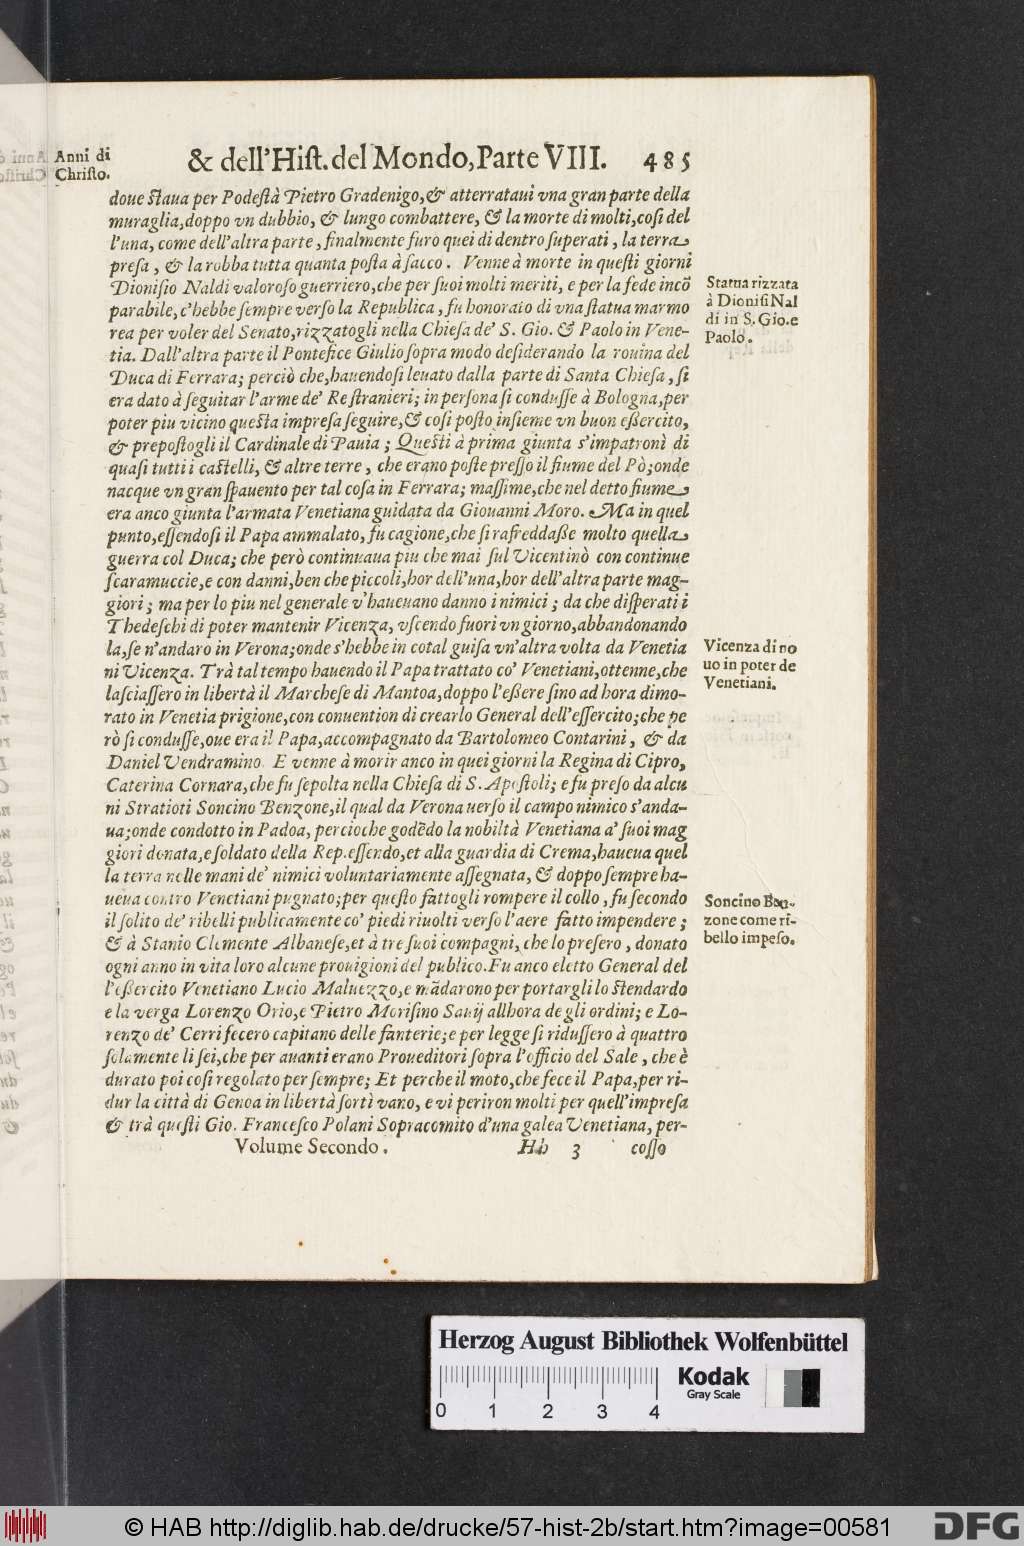 Anni di
Christo.
& dell'Hist. del Mondo, Parte VIII. 485
doue staua per Podestà Pietro Gradenigo, & atterrataui vna gran parte della
muraglia, doppo vn dubbio, & lungo combattere, & la morte di molti, cosi del
l'una, come dell'altra parte, finalmente furo quei di dentro superati, la terra
presa, & la robba tutta quanta posta à sacco. Venne à morte in questi giorni
Dionisio Naldi valoroso guerriero, che per suoi molti meriti, e per la fede incō
parabile, c'hebbe sempre verso la Republica, fu honorato di vna statua marmo
rea per voler del Senato, rizzatogli nella Chiesa de' S. Gio. & Paolo in Vene-
tia. Dall'altra parte il Pontefice Giulio sopra modo desiderando la rouina del
Duca di Ferrara; perciò che, hauendosi leuato dalla parte di Santa Chiesa, si
era dato à seguitar l'arme de' Re stranieri; in persona si condusse à Bologna, per
poter piu vicino questa impresa seguire, & cosi posto insieme vn buon essercito,
& prepostogli il Cardinale di Pauia; Questi à prima giunta s'impatronì di
quasi tutti i castelli, & altre terre, che erano poste presso il fiume del Pò; onde
nacque vn gran spauento per tal cosa in Ferrara; massime, che nel detto fiume
era anco giunta l'armata Venetiana guidata da Giouanni Moro. Ma in quel
punto, essendosi il Papa ammalato, fu cagione, che si rafreddasse molto quella
guerra col Duca; che però continuaua piu che mai sul Vicentinò con continue
scaramuccie, e con danni, ben che piccoli, hor dell'una, hor dell'altra parte mag-
giori; ma per lo piu nel generale v'haueuano danno i nimici; da che disperati i
Thedeschi di poter mantenir Vicenza, vscendo fuori vn giorno, abbandonando
la, se n'andaro in Verona; onde s'hebbe in cotal guisa vn'altra volta da Venetia
ni Vicenza. Trà tal tempo hauendo il Papa trattato co' Venetiani, ottenne, che
lasciassero in libertà il Marchese di Mantoa, doppo l'essere sino ad hora dimo-
rato in Venetia prigione, con conuention di crearlo General dell'essercito; che pe
rò si condusse, oue era il Papa, accompagnato da Bartolomeo Contarini, & da
Daniel Vendramino. E venne à morir anco in quei giorni la Regina di Cipro,
Caterina Cornara, che fu sepolta nella Chiesa di S. Apostoli; e fu preso da alcu
ni Stratioti Soncino Benzone, il qual da Verona uerso il campo nimico s'anda-
ua; onde condotto in Padoa, percioche godēdo la nobiltà Venetiana a' suoi mag
giori donata, e soldato della Rep. essendo, et alla guardia di Crema, haueua quel
la terra nelle mani de' nimici voluntariamente assegnata, & doppo sempre ha-
ueua contro Venetiani pugnato; per questo fattogli rompere il collo, fu secondo
il solito de' ribelli publicamente co' piedi riuolti verso l'aere fatto impendere;
& à Stanio Clemente Albanese, et à tre suoi compagni, che lo presero, donato
ogni anno in vita loro alcune prouigioni del publico. Fu anco eletto General del
l'essercito Venetiano Lucio Maluezzo, e mādarono per portargli lo stendardo
e la verga Lorenzo Orio, e Pietro Morisino Sauij allhora de gli ordini; e Lo-
renzo de' Cerri fecero capitano delle fanterie; e per legge si ridussero à quattro
solamente li sei, che per auanti erano Proueditori sopra l'officio del Sale, che è
durato poi cosi regolato per sempre; Et perche il moto, che fece il Papa, per ri-
dur la città di Genoa in libertà sortì vano, e vi periron molti per quell'impresa
& trà questi Gio. Francesco Polani Sopracomito d'una galea Venetiana, per-
Volume Secondo. Hh 3 cosso
Statua rizzata
à Dionisi Nal
di in S. Gio. e
Paolo.
Vicenza di no
uo in poter de
Venetiani.
Soncino Ben-
zone come ri-
bello impeso.
Herzog August Bibliothek Wolfenbüttel
Kodak
Gray Scale
0 1 2 3 4
© HAB http://diglib.hab.de/drucke/57-hist-2b/start.htm?image=00581
DFG